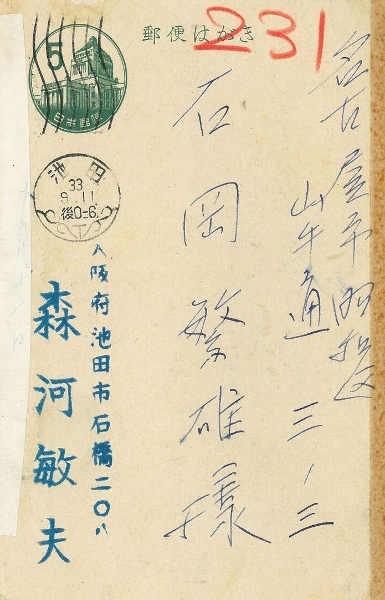 郵便はがき
231
5
日本郵便
池田
33
9.11
後0-6
名古屋市昭和区
山手通三ノ三
石岡繁雄様
大阪府池田市石橋二〇八
森河敏夫